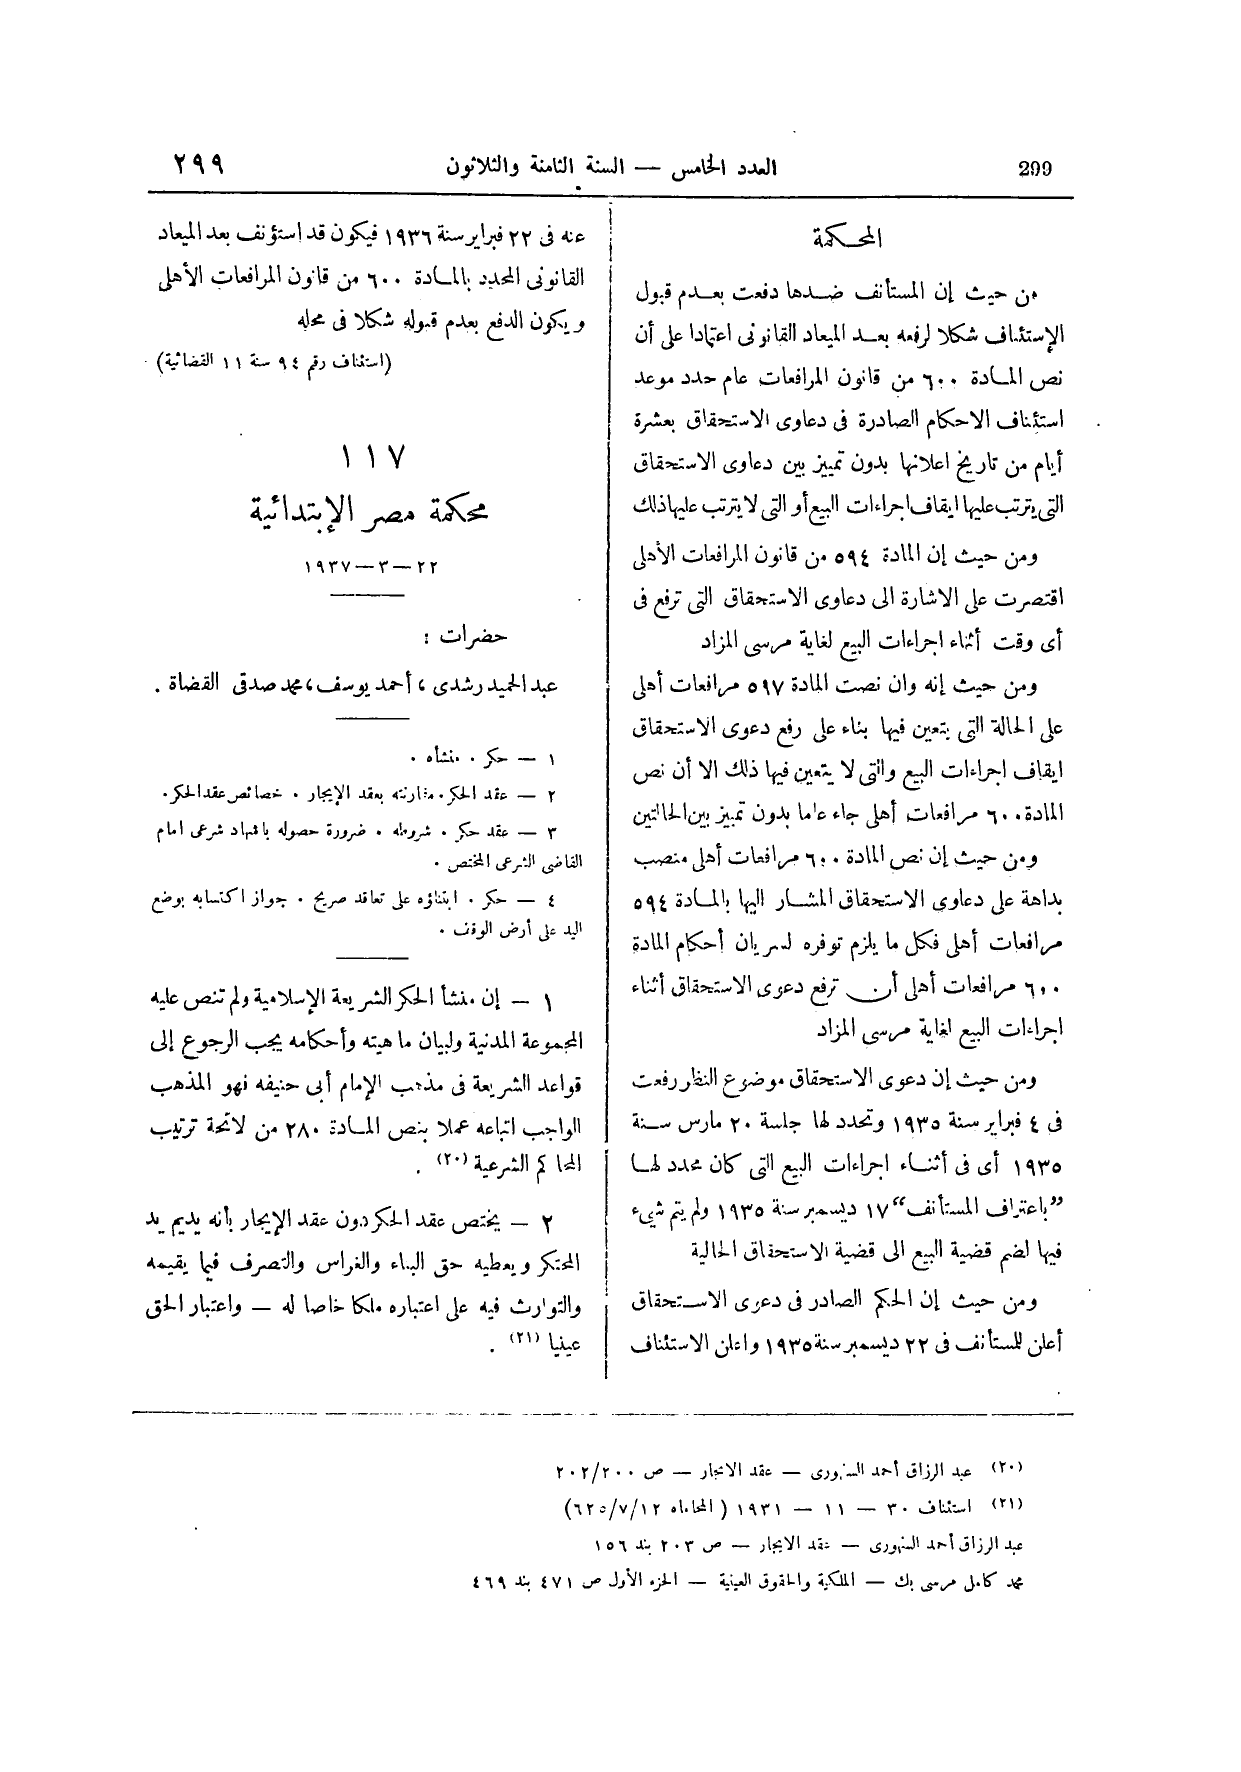 299
العدد الخامس — السنة الثامنة والثلاثون
٢٩٩
المحكمة
من حيث إن المستأنف ضدها دفعت بعدم قبول
الإستئناف شكلا لرفعه بعد الميعاد القانونى اعتمادا على أن
نص المادة ٦٠٠ من قانون المرافعات عام حدد موعد
استئناف الاحكام الصادرة فى دعاوى الاستحقاق بعشرة
أيام من تاريخ اعلانها بدون تمييز بين دعاوى الاستحقاق
التى يترتب عليها ايقاف اجراءات البيع أو التى لا يترتب عليها ذلك
ومن حيث إن المادة ٥٩٤ من قانون المرافعات الأهلى
اقتصرت على الاشارة الى دعاوى الاستحقاق التى ترفع فى
أى وقت أثناء اجراءات البيع لغاية مرسى المزاد
ومن حيث إنه وان نصت المادة ٥٩٧ مرافعات أهلى
على الحالة التى يتعين فيها بناء على رفع دعوى الاستحقاق
ايقاف اجراءات البيع والتى لا يتعين فيها ذلك الا أن نص
المادة ٦٠٠ مرافعات أهلى جاء عاما بدون تمييز بين الحالتين
ومن حيث إن نص المادة ٦٠٠ مرافعات أهلى منصب
بداهة على دعاوى الاستحقاق المشار اليها بالمادة ٥٩٤
مرافعات أهلى فكل ما يلزم توفره لسريان أحكام المادة
٦٠٠ مرافعات أهلى أن ترفع دعوى الاستحقاق أثناء
اجراءات البيع لغاية مرسى المزاد
ومن حيث إن دعوى الاستحقاق موضوع النظر رفعت
فى ٤ فبراير سنة ١٩٣٥ وتحدد لها جلسة ٢٠ مارس سنة
١٩٣٥ أى فى أثناء اجراءات البيع التى كان محدد لها
”باعتراف المستأنف“ ١٧ ديسمبر سنة ١٩٣٥ ولم يتم شىء
فيها لضم قضية البيع الى قضية الاستحقاق الحالية
ومن حيث إن الحكم الصادر فى دعوى الاستحقاق
أعلن للمستأنف فى ٢٢ ديسمبر سنة ١٩٣٥ واعلن الاستئناف
عنه فى ٢٢ فبراير سنة ١٩٣٦ فيكون قد استؤنف بعد الميعاد
القانونى المحدد بالمادة ٦٠٠ من قانون المرافعات الأهلى
ويكون الدفع بعدم قبوله شكلا فى محله
(استئناف رقم ٩٤ سنة ١١ القضائية)
١١٧
محكمة مصر الإبتدائية
٢٢—٣—١٩٣٧
حضرات :
عبد الحميد رشدى ، أحمد يوسف ، محمد صدقى القضاة .
١ — حكر . منشأه .
٢ — عقد الحكر . مقارنته بعقد الإيجار . خصائص عقد الحكر .
٣ — عقد حكر . شروطه . ضرورة حصوله باشهاد شرعى امام
القاضى الشرعى المختص .
٤ — حكر . ابتناؤه على تعاقد صريح . جواز اكتسابه بوضع
اليد على أرض الوقف .
١ — إن منشأ الحكر الشريعة الإسلامية ولم تنص عليه
المجموعة المدنية ولبيان ماهيته وأحكامه يجب الرجوع إلى
قواعد الشريعة فى مذهب الإمام أبى حنيفه فهو المذهب
الواجب اتباعه عملا بنص المادة ٢٨٠ من لائحة ترتيب
المحاكم الشرعية (٢٠) .
٢ — يختص عقد الحكر دون عقد الإيجار بأنه يديم يد
المحتكر ويعطيه حق البناء والغراس والتصرف فيما يقيمه
والتوارث فيه على اعتباره ملكا خاصا له — واعتبار الحق
عينيا (٢١) .
(٢٠) عبد الرزاق أحمد السنهورى — عقد الايجار — ص ٢٠٠/٢٠٢
(٢١) استئناف ٣٠ — ١١ — ١٩٣١ ( المحاماه ١٢/٧/٦٢٥)
عبد الرزاق أحمد السنهورى — عقد الايجار — ص ٢٠٣ بند ١٥٦
محمد كامل مرسى بك — الملكية والحقوق العينية — الجزء الأول ص ٤٧١ بند ٤٦٩